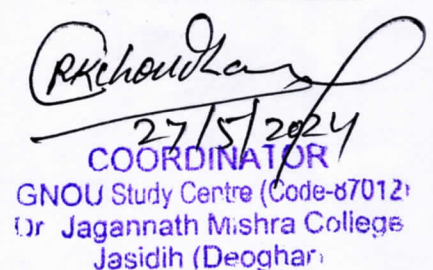 RKChoudhary
27/5/2024
COORDINATOR
GNOU Study Centre (Code-87012)
Dr Jagannath Mishra College
Jasidih (Deoghar)